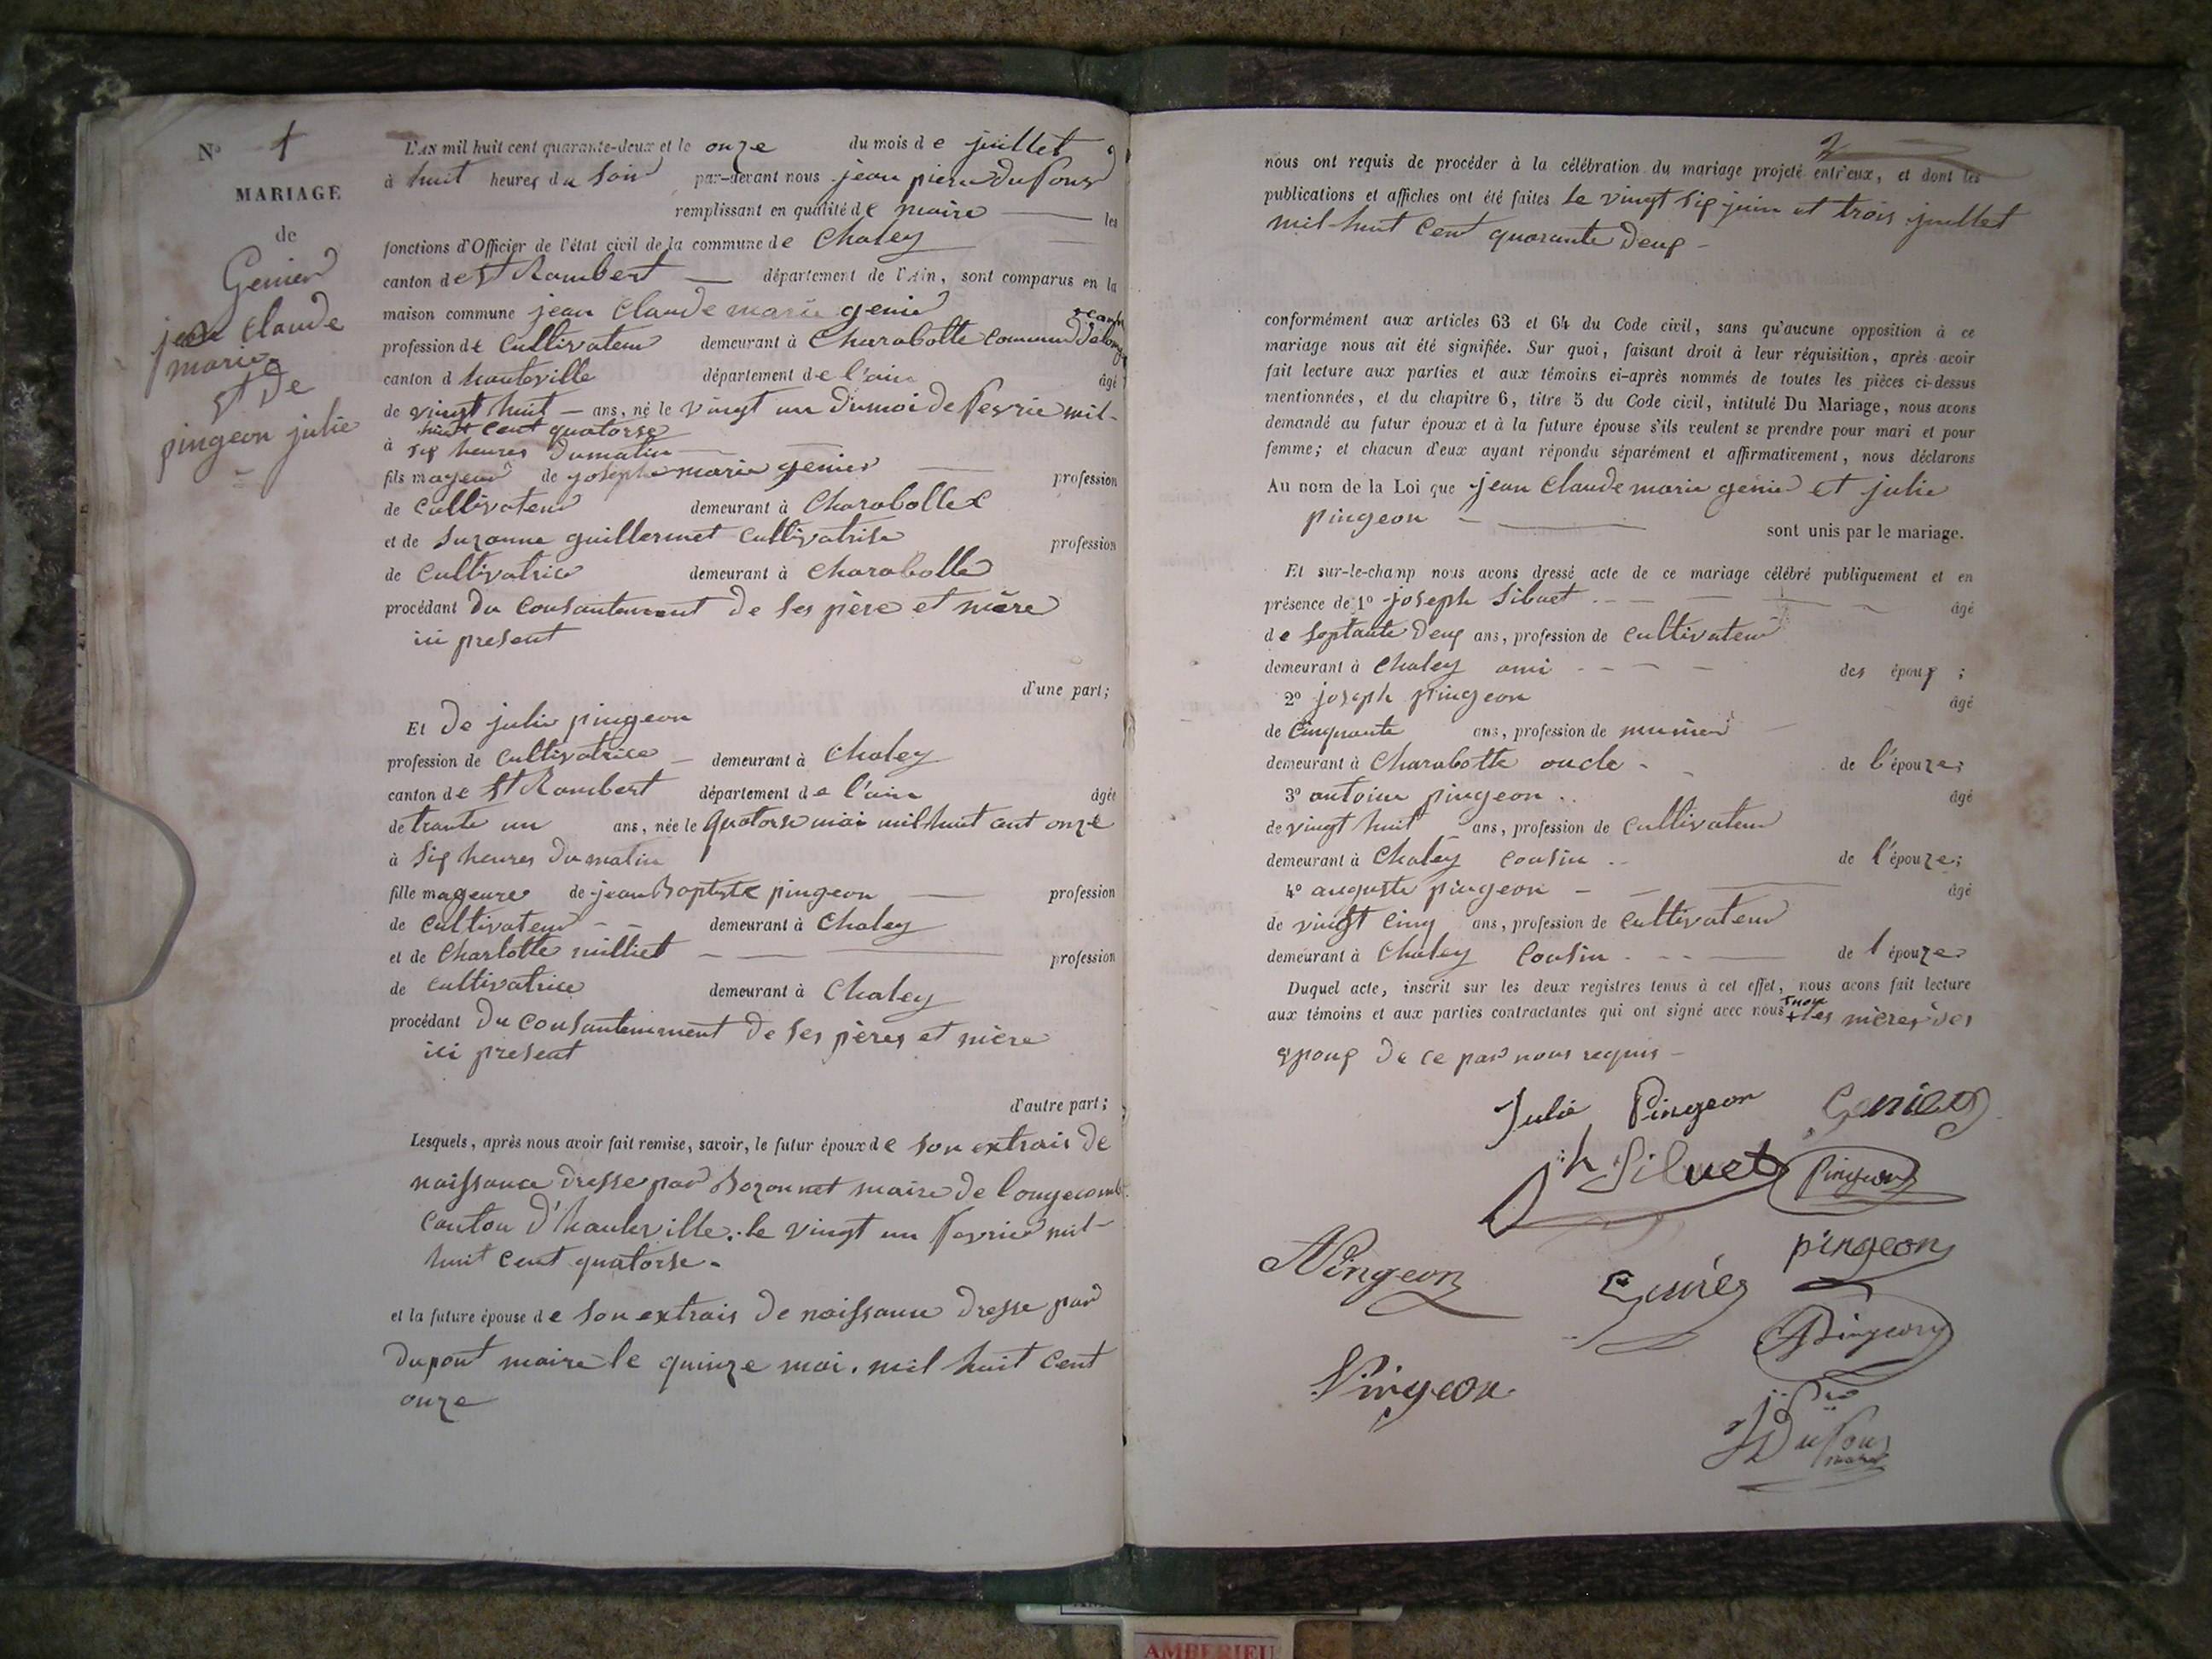 N° 1
MARIAGE
de
Genier
jean Claude
marie
et De
pingeon julie
L'AN mil huit cent quarante-deux et le onze du mois de juillet
à huit heures du soir par-devant nous jean pierre Dufour
remplissant en qualité de maire les
fonctions d'Officier de l'état civil de la commune de Chaley
canton de St Rambert département de l'Ain, sont comparus en la
maison commune jean Claude marie genier
profession de Cultivateur demeurant à Charabotte Commune Delongecombe
canton d hauteville département de l'ain âgé
de vingt huit ans, né le vingt un Dumoi de fevrie mil-
huit Cent quatorse
à six heures Dumatin
fils majeur de josephe marie genier profession
de Cultivateur demeurant à Charabotte
et de Suzanne guillermet Cultivatrise profession
de Cultivatrice demeurant à Charabotte
procédant Du Consantement De ses père et mère
ici present
d'une part;
Et De julie pingeon
profession de Cultivatrice demeurant à Chaley
canton de St Rambert département de l'ain âgée
de trante un ans, née le quatorse mai mil huit cent onze
à Six heures Du matin
fille mageure de jean Baptiste pingeon profession
de Cultivateur demeurant à Chaley
et de Charlotte milliet profession
de Cultivatrice demeurant à Chaley
procédant Du Consantement De ses pères et mère
ici present
d'autre part;
Lesquels, après nous avoir fait remise, savoir, le futur époux de son extrais De
naissance Dresse par Bozonnet maire De longecombe
Canton D'hauteville. le vingt un fevrier mil-
huit Cent quatorse -
et la future épouse de son extrais De naissance Dresse par
Dupont maire le quinze mai. mil huit Cent
onze
2
nous ont requis de procéder à la célébration du mariage projeté entr'eux, et dont les
publications et affiches ont été faites le vingt six juin et trois juillet
mil-huit Cent quarante Deux -
conformément aux articles 63 et 64 du Code civil, sans qu'aucune opposition à ce
mariage nous ait été signifiée. Sur quoi, faisant droit à leur réquisition, après avoir
fait lecture aux parties et aux témoins ci-après nommés de toutes les pièces ci-dessus
mentionnées, et du chapitre 6, titre 5 du Code civil, intitulé Du Mariage, nous avons
demandé au futur époux et à la future épouse s'ils veulent se prendre pour mari et pour
femme; et chacun d'eux ayant répondu séparément et affirmativement, nous déclarons
Au nom de la Loi que jean Claude marie genier et julie
pingeon sont unis par le mariage.
Et sur-le-champ nous avons dressé acte de ce mariage célébré publiquement et en
présence de 1° joseph Sibuet âgé
de Septante Deux ans, profession de Cultivateur
demeurant à Chaley ami des époux ;
2° joseph pingeon âgé
de Cinquante ans, profession de munier
demeurant à Charabotte oncle de l'épouze;
3° antoine pingeon âgé
de vingt huit ans, profession de Cultivateur
demeurant à Chaley cousin de l'épouze;
4° auguste pingeon âgé
de vingt Cinq ans, profession de Cultivateur
demeurant à Chaley Cousin de l épouze
Duquel acte, inscrit sur les deux registres tenus à cet effet, nous avons fait lecture
aux témoins et aux parties contractantes qui ont signé avec nous + non les mères Des
epoux De ce par nous requis -
Julie Pingeon Genier
jh Sibuet Pingeon
Pingeon Genier pingeon
Pingeon
Pingeon
j. Pre
Dufour
maire
AMBERIEU